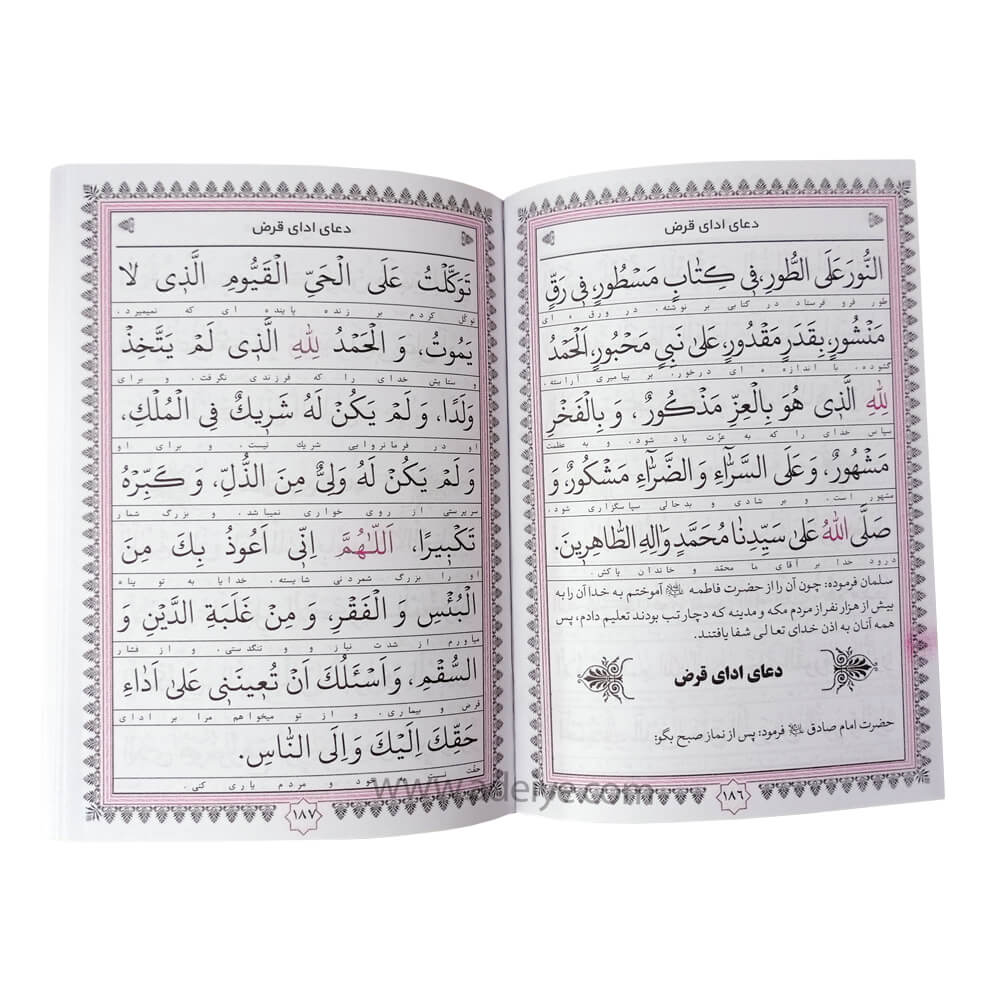 دعای ادای قرض
النُّورَ عَلَى الطُّورِ، فِي كِتَابٍ مَسْطُورٍ، فِي رَقٍّ
طور فرو فرستاد در کتابی بر نوشته. در ورق ه ای
مَنْشُورٍ، بِقَدَرٍ مَقْدُورٍ، عَلَى نَبِيٍّ مَحْبُورٍ، اَلْحَمْدُ
گشوده. با اندازه ه ای درخور. بر پیامبری آراسته.
لِلّٰهِ الَّذِي هُوَ بِالْعِزِّ مَذْكُورٌ، وَ بِالْفَخْرِ
سپاس خدای را که به عزّت یاد شود، و به عظمت
مَشْهُورٌ، وَ عَلَى السَّرَّاءِ وَ الضَّرَّاءِ مَشْكُورٌ، وَ
مشهور است. و بر شادی و بدحالی سپاسگزاری شود.
صَلَّى اللّٰهُ عَلَى سَيِّدِنَا مُحَمَّدٍ وَ الِهِ الطَّاهِرِينَ.
درود خدا بر آقای ما محمّد و خاندان پاکش.
سلمان فرموده: چون آن را از حضرت فاطمه آموختم به خدا آن را به
بیش از هزار نفر از مردم مکه و مدینه که دچار تب بودند تعلیم دادم، پس
همه آنان به اذن خدای تعالی شفا یافتند.
دعای ادای قرض
حضرت امام صادق فرمود: پس از نماز صبح بگو:
۱۸۶
دعای ادای قرض
تَوَكَّلْتُ عَلَى الْحَيِّ الْقَيُّومِ الَّذِي لَا
توکل کردم بر زنده پاینده ه ای که نمیمیرد.
يَمُوتُ، وَ الْحَمْدُ لِلّٰهِ الَّذِي لَمْ يَتَّخِذْ
و ستایش خدای را که فرزندی نگرفت. و برای
وَلَدًا، وَ لَمْ يَكُنْ لَهُ شَرِيكٌ فِي الْمُلْكِ،
او در فرمانروایی شریک نیست. و برای او
وَ لَمْ يَكُنْ لَهُ وَلِيٌّ مِنَ الذُّلِّ، وَ كَبِّرْهُ
سرپرستی از روی خواری نمیباشد. و بزرگ شمار
تَكْبِيرًا، اَللّٰهُمَّ اِنِّي اَعُوذُ بِكَ مِنَ
او را بزرگ شمردنی شایسته. خدایا به تو پناه
الْبُؤْسِ وَ الْفَقْرِ، وَ مِنْ غَلَبَةِ الدَّيْنِ وَ
میاورم از شدت نیاز و و تنگدستی. و از فشار
السُّقْمِ، وَ اَسْئَلُكَ اَنْ تُعِينَنِي عَلَى اَدَاءِ
قرض و بیماری. و از تو میخواهم مرا بر ادای
حَقِّكَ اِلَيْكَ وَ اِلَى النَّاسِ.
حقت خود و مردم یاری کنی.
۱۸۷
www.adeiye.com